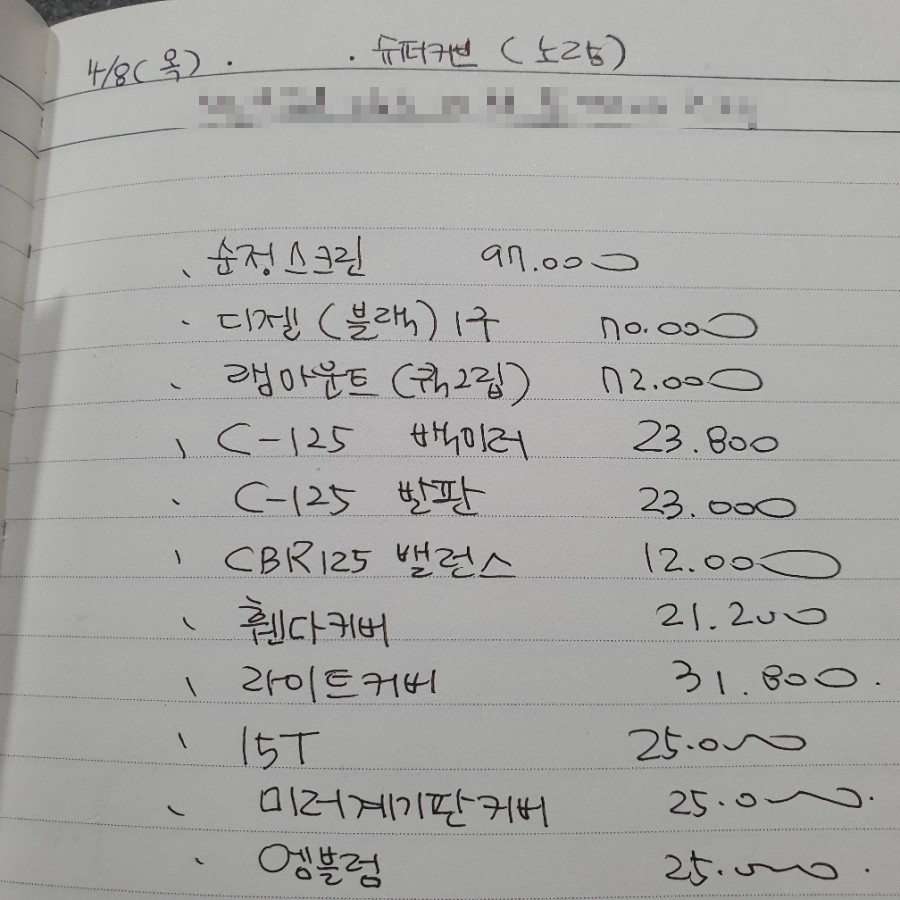 4/8(목). . 슈퍼커브 (노랑)
、순정스크린 97.000
. 디젤(블랙) 1구 70.000
、램마운트(퀵그립) 72.000
、C-125 백미러 23.800
. C-125 발판 23.000
、CBR125 밸런스 12.000
、휀다커버 21.200
、라이트커버 31.800.
、15T 25.000
、미러계기판커버 25.000.
. 엠블럼 25.000.